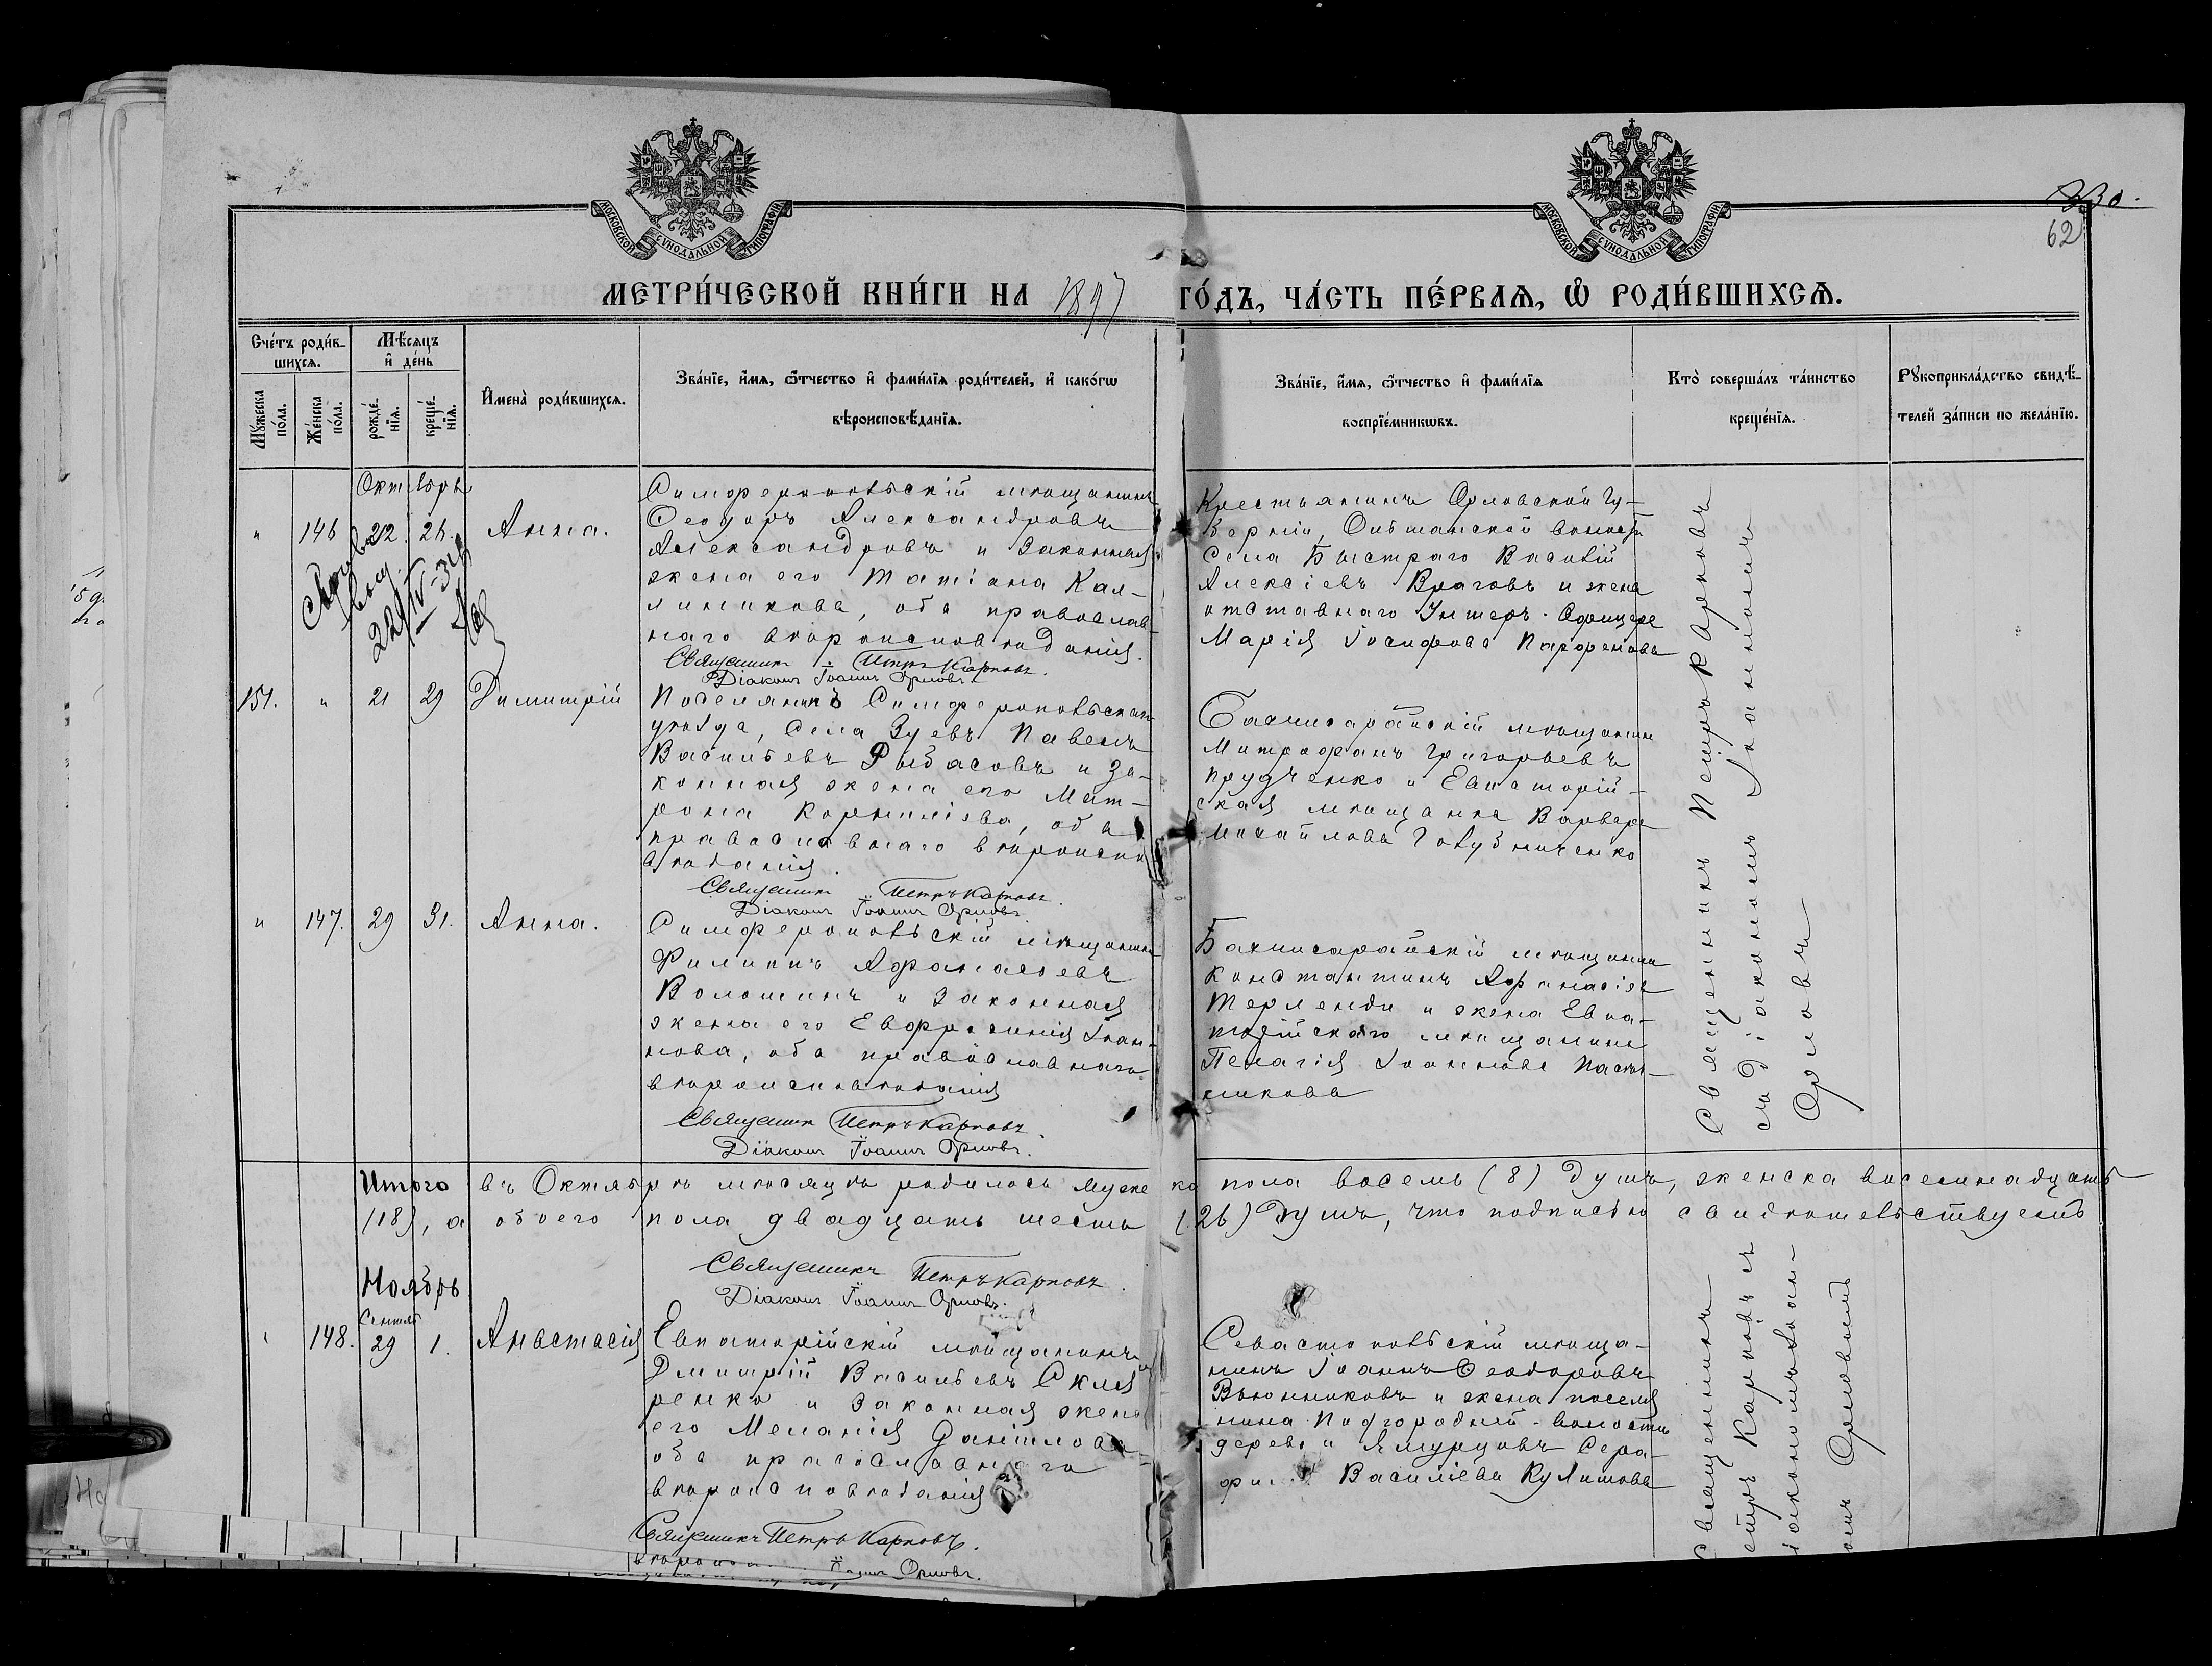 МОСКОВСКОЙ СѴНОДАЛЬНОЙ ТИПОГРАФІИ
МОСКОВСКОЙ СѴНОДАЛЬНОЙ ТИПОГРАФІИ
62
МЕТРИ́ЧЕСКОЙ КНИ́ГИ НА 1897 ГО́ДЪ, ЧА́СТЬ ПЕ́РВАѦ, Ѡ҆ РОДИ́ВШИХСѦ.
Сче́тъ роди́в-
шихсѧ.
Мꙋ́жеска по́ла.
Же́нска по́ла.
Мѣ́сѧцъ и҆ де́нь
рожде́-нїѧ.
креще́-нїѧ.
И҆мена̀ роди́вшихсѧ.
Зва́нїе, и҆́мѧ, ѻ҆́тчество и҆ фами́лїѧ роди́телей, и҆ како́гѡ
вѣроисповѣ́данїѧ.
Зва́нїе, и҆́мѧ, ѻ҆́тчество и҆ фами́лїѧ
воспрїе́мникѡвъ.
Кто̀ соверша́лъ та́инство
креще́нїѧ.
Рꙋкоприкла́дство свидѣ́-
телей за́писи по жела́нїю.
Октябрь
" 146 22. 26. Анна.
Симферопольскій мѣщанинъ
Ѳеодоръ Александровъ
Александровъ и законная
жена его Татіана Кал-
линикова, оба православ-
наго вѣроисповѣданія.
Священникъ Петръ Карповъ.
Діаконъ Іоаннъ Орловъ.
Крестьянинъ Орловской гу-
берніи, волости
села Быстраго Василій
Алексіевъ Враговъ и жена
отставнаго Унтеръ-Офицера
Марія Іосифова Парфенова
22/IV-34
151. " 21 29 Димитрій
Поселянинъ Симферопольскаго
уѣзда, села Зуевъ Павелъ
Васильевъ Рыбасовъ и за-
конная жена его Мат-
рона Корниліева, оба
православнаго вѣроиспо
вѣданія.
Священникъ Петръ Карповъ.
Діаконъ Іоаннъ Орловъ.
Бахчисарайскій мѣщанинъ
Митрофанъ Григорьевъ
Прудченко и Евпаторій-
ская мѣщанка Варвара
Михайлова Голубниченко
" 147. 29 31. Анна.
Симферопольскій мѣщанинъ
Филиппъ Афанасьевъ
Волошинъ и законная
жена его Евфросинія Іоан-
нова, оба православнаго
вѣроисповѣданія
Священникъ Петръ Карповъ.
Діаконъ Іоаннъ Орловъ.
Бахчисарайскій мѣщанинъ
Константинъ Афанасіевъ
Терленди и жена Евпа-
торійскаго мѣщанина
Пелагія Іоаннова
Священникъ Петръ Карповъ
съ діакономъ Іоанномъ
Орловымъ
Итого въ Октябрѣ мѣсяцѣ родилось мужеска пола восемь (8) душъ, женска восемнадцать
(18), а обоего пола двадцать шесть (26) душъ, что подписью свидѣтельствуемъ
Священникъ Петръ Карповъ.
Діаконъ Іоаннъ Орловъ.
Ноябрь
Сентяб
148. 29 1. Анастасія
Евпаторійскій мѣщанинъ
Дмитрій Васильевъ Скля
ренко и законная жена
его Меланія Даніилова
оба православнаго
вѣроисповѣданія
Священникъ Петръ Карповъ.
Іоаннъ Орловъ.
Севастопольскій мѣща-
нинъ Іоаннъ Ѳеодоровъ
Вьюнниковъ и жена поселя
нина Подгородней волости
деревни Сера-
Василіева Кулишова
Священникъ
Петръ Карповъ съ
діакономъ Іоан-
номъ Орловымъ